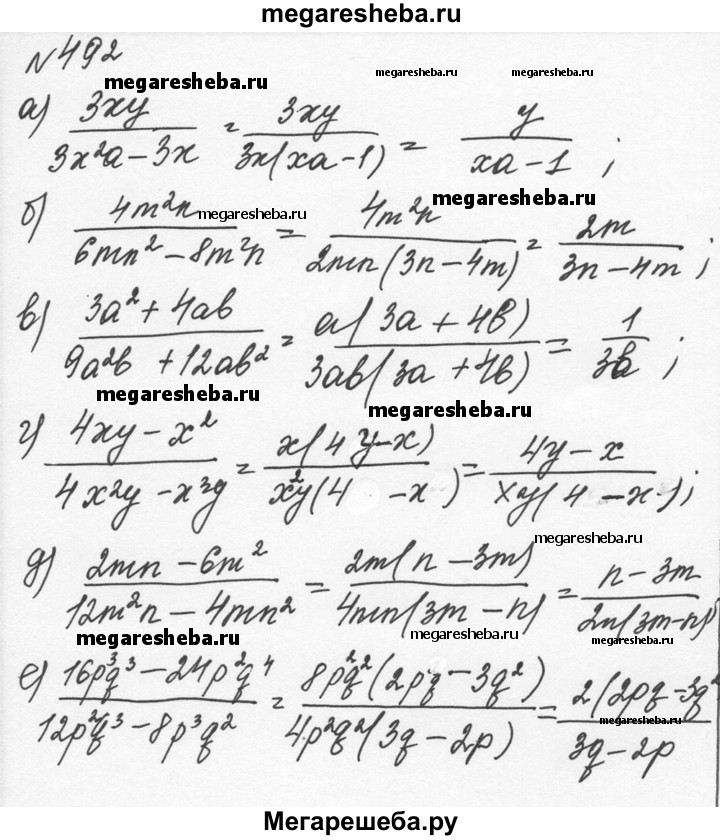 megaresheba.ru
№492
megaresheba.ru megaresheba.ru megaresheba.ru
а) 3xy/(3x²a - 3x) = 3xy/(3x(xa - 1)) = y/(xa - 1);
megaresheba.ru megaresheba.ru
б) 4m²n/(6mn² - 8m²n) = 4m²n/(2mn(3n - 4m)) = 2m/(3n - 4m);
в) (3a² + 4ab)/(9a²b + 12ab²) = a(3a + 4b)/(3ab(3a + 4b)) = 1/(3b);
megaresheba.ru megaresheba.ru
г) (4xy - x²)/(4x²y - x³y) = x(4y - x)/(x²y(4 - x)) = (4y - x)/(xy(4 - x));
megaresheba.ru megaresheba.ru
д) (2mn - 6m²)/(12m²n - 4mn²) = 2m(n - 3m)/(4mn(3m - n)) = (n - 3m)/(2n(3m - n))
megaresheba.ru megaresheba.ru megaresheba.ru
е) (16p³q³ - 24p²q⁴)/(12p²q³ - 8p³q²) = 8p²q²(2pq - 3q²)/(4p²q²(3q - 2p)) = 2(2pq - 3q²/(3q - 2p)
megaresheba.ru
Мегарешеба.ру